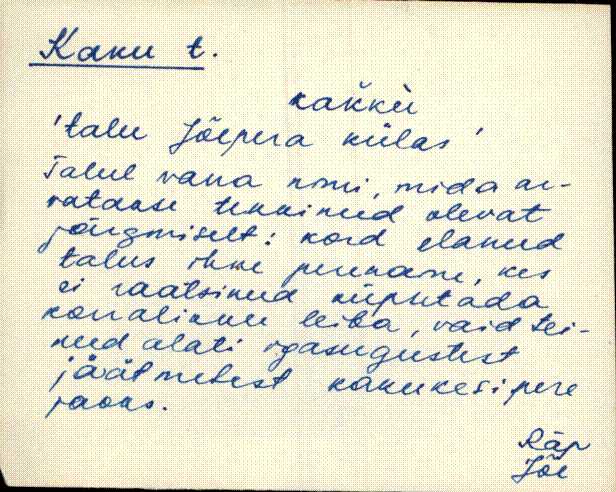 Kaku t.
kak̆k̆ù
'talu Jõepera külas'
Talul vana nimi, mida ar-
vatakse tekkinud olevat
järgmiselt: kord elanud
talus ihne perenaine, kes
ei raatsinud küpsetada
korralikku leiba, vaid tei-
nud alati igasugustest
jäätmetest kakukesi pere
jaoks.
Räp
Jõe